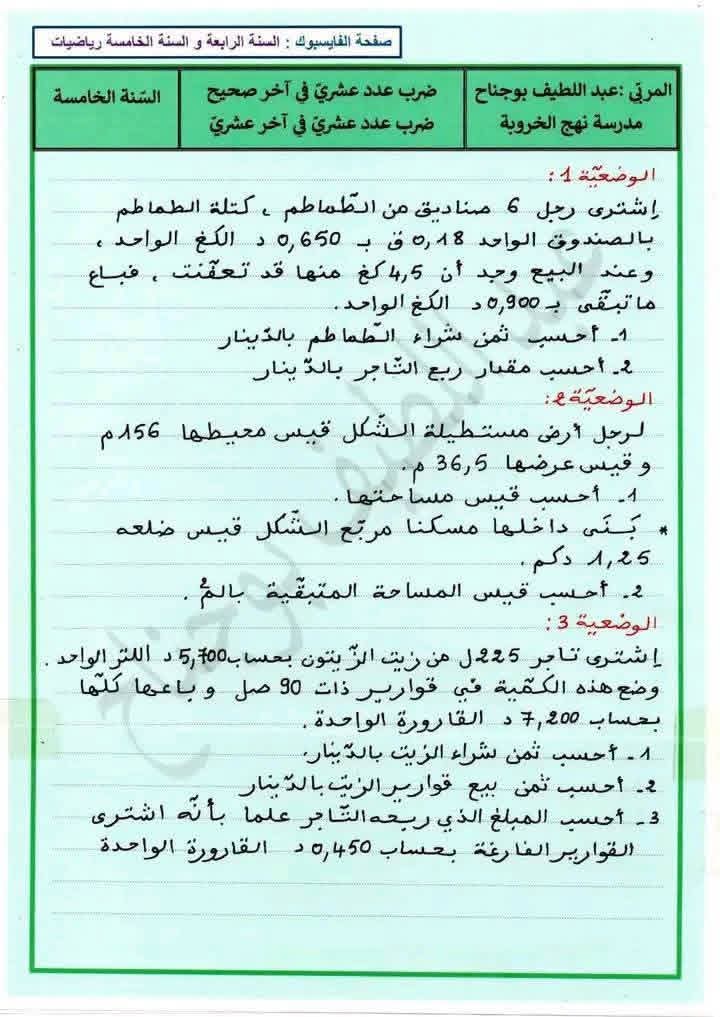 صفحة الفايسبوك : السنة الرابعة و السنة الخامسة رياضيات
المربّي :عبد اللطيف بوجناح
مدرسة نهج الخروبة
ضرب عدد عشريّ في آخر صحيح
ضرب عدد عشريّ في آخر عشريّ
السّنة الخامسة
الوضعيّة 1:
إشترى رجل 6 صناديق من الطّماطم ، كتلة الطماطم
بالصندوق الواحد 0,18 ق بـ 0,650 د الكغ الواحد ،
و عند البيع وجد أن 4,5 كغ منها قد تعفّنت ، فباع
ما تبقّى بـ 0,900 د الكغ الواحد.
1- أحسب ثمن شراء الطّماطم بالدّينار
2- أحسب مقدار ربح التّاجر بالدّينار
الوضعيّة 2:
لرجل أرض مستطيلة الشّكل قيس محيطها 156 م
و قيس عرضها 36,5 م.
1- أحسب قيس مساحتها.
* بَنَى داخلها مسكنا مربّع الشّكل قيس ضلعه
1,25 دكم.
2- أحسب قيس المساحة المتبقّية بالم².
الوضعية 3:
إشترى تاجر 225 ل من زيت الزّيتون بحساب 5,700 د اللتر الواحد.
وضع هذه الكمّية في قوارير ذات 90 صل و باعها كلّها
بحساب 7,200 د القارورة الواحدة.
1- أحسب ثمن شراء الزيت بالدّينار.
2- أحسب ثمن بيع قوارير الزيت بالدّينار
3- أحسب المبلغ الذي ربحه التّاجر علما بأنّه اشترى
القوارير الفارغة بحساب 0,450 د القارورة الواحدة
عبد اللطيف بوجناح